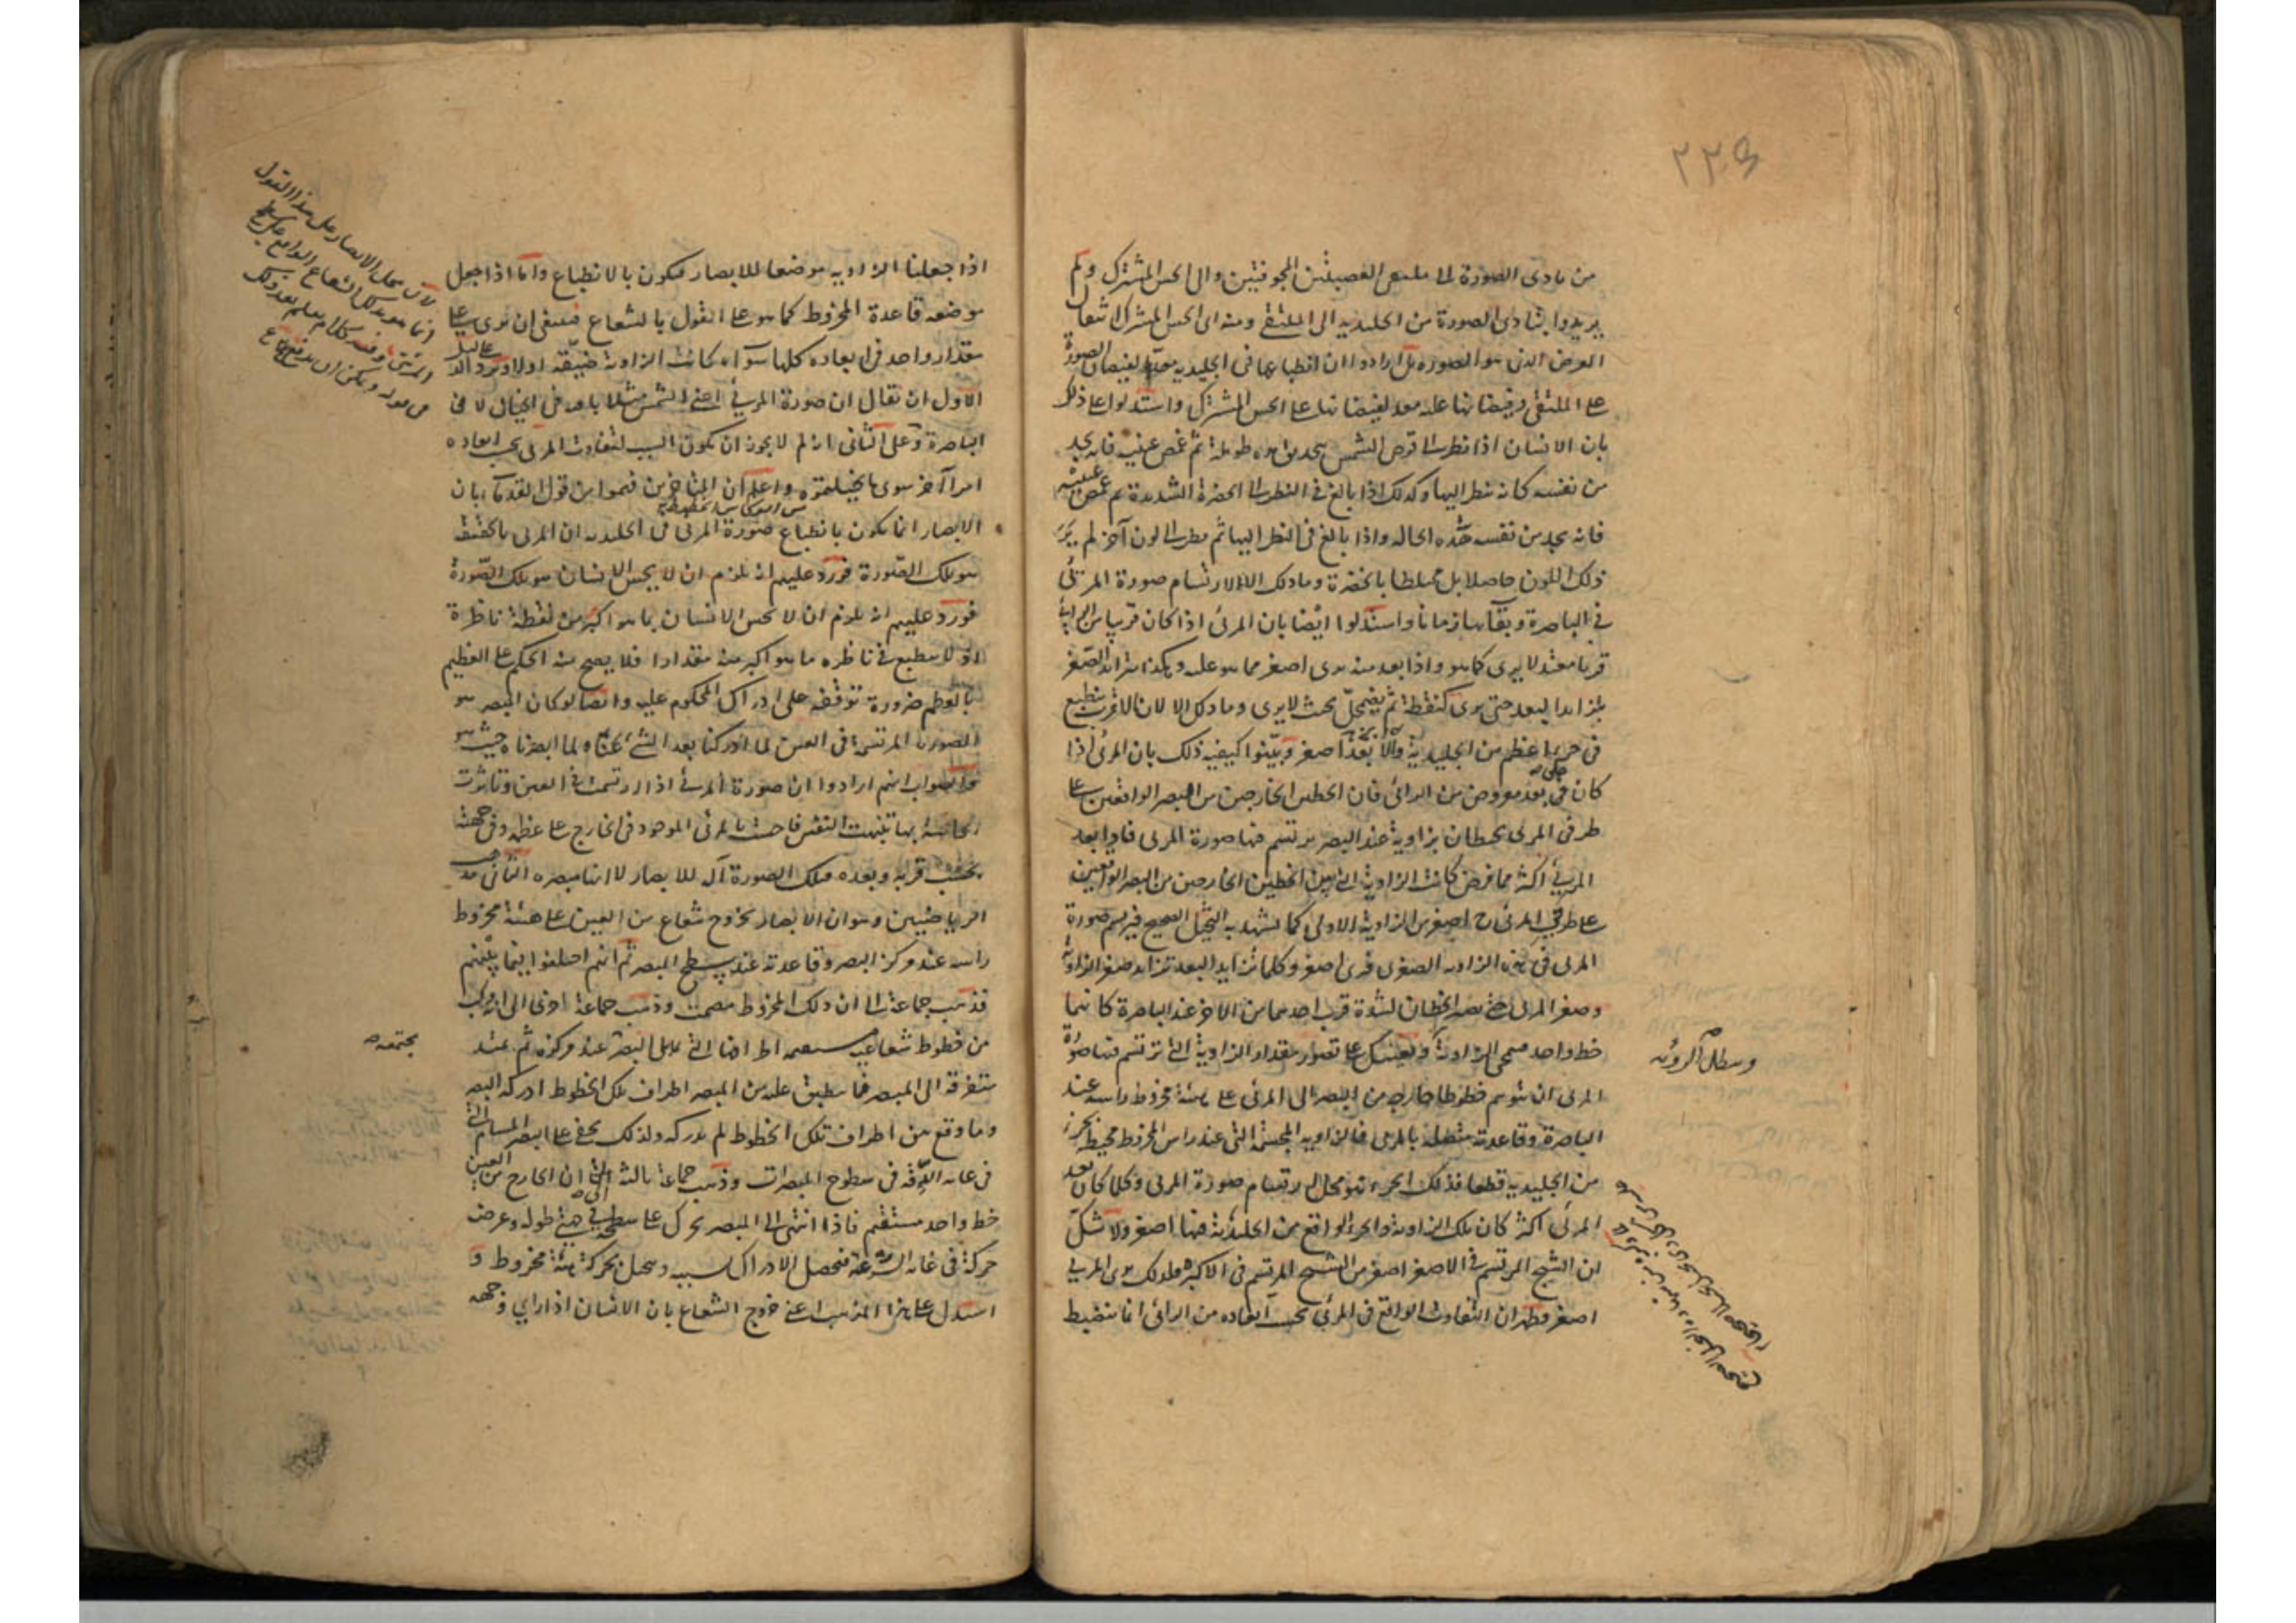 ٢٢٤
من تادى الصورة الى ملتقى العصبتين المجوفتين والى الحس المشترك ولم
يريدوا بتادى الصورة من الجليدية الى الملتقى ومنه الى الحس المشترك انتقال
العرض الذى هو الصورة بل ارادوا ان انطباعها فى الجليدية معد لفيضان الصورة
على الملتقى وفيضانها عليه معد لفيضانها على الحس المشترك واستدلوا على ذلك
بان الانسان اذا نظر الى قرص الشمس بتحديق مدة طويلة ثم غمض عينيه فانه يجد
من نفسه كانه ينظر اليها وكذلك اذا بالغ فى النظر الى الخضرة الشديدة ثم غمض عينيه
فانه يجد من نفسه هذه الحالة واذا بالغ فى النظر اليها ثم نظر الى لون آخر لم ير
ذلك اللون خالصا بل مختلطا بالخضرة وما ذلك الا لارتسام صورة المرئى
فى الباصرة وبقائها زمانا واستدلوا ايضا بان المرئى اذا كان قريبا من الرائى
قربا معتدلا يرى كما هو واذا بعد منه يرى اصغر مما هو عليه وهكذا يتزايد الصغر
بتزايد البعد حتى يرى كنقطة ثم يضمحل بحيث لا يرى وما ذلك الا لان الاقرب ينطبع
فى جزء اعظم من الجليدية والابعد اصغر وبينوا كيفية ذلك بان المرئى اذا
كان فى بعد مفروض من الرائى فان الخطين الخارجين من البصر الواقعين على
طرفى المرئى يحيطان بزاوية عند البصر يرتسم فيها صورة المرئى فاذا بعد
المرئى اكثر مما فرض كانت الزاوية التى بين الخطين الخارجين من البصر الواقعين
على طرفى المرئى ح اصغر من الزاوية الاولى كما تشهد به التخيل الصحيح فيرتسم صورة
المرئى فى هذه الزاوية الصغرى فيرى اصغر وكلما تزايد البعد تزايد صغر الزاوية
وصغر المرئى حتى يصير الخطان لشدة قرب احدهما من الآخر عند الباصرة كانهما
خط واحد فينمحى الزاوية ويعينك على تصور مقدار الزاوية التى ترتسم فيها صورة
وتبطل الرؤية
المرئى ان تتوهم خطوطا خارجة من البصر الى المرئى على هيئة مخروط راسه عند
الباصرة وقاعدته متصلة بالمرئى فالزاوية المجسمة التى عند راس المخروط محيط بجزء
من الجليدية قطعا فذلك الجزء هو محل لارتسام صورة المرئى وكلما كان بعد
المرئى اكثر كان تلك الزاوية والجزء الواقع من الجليدية فيها اصغر ولا شك
ان الشبح المرتسم فى الاصغر اصغر من الشبح المرتسم فى الاكبر فلذلك يرى المرئى
اصغر فظهر ان التفاوت الواقع فى المرئى بحسب ابعاده من الرائى انما ينضبط
اذا جعلنا الزاوية موضعا للابصار فيكون بالانطباع واما اذا جعل
موضعه قاعدة المخروط كما هو على القول بالشعاع فينبغى ان يرى على
مقدار واحد فى ابعاده كلها سواء كانت الزاوية ضيقة اولا ويرد على الدليل
الاول ان يقال ان صورة المرئى اعنى الشمس مثلا باقية فى الخيال لا فى
الباصرة وعلى الثانى انه لم لا يجوز ان يكون السبب لتفاوت المرئى بحسب ابعاده
امرا آخر سوى ما تخيلتموه واعلم ان المتاخرين فهموا من قول القدماء بان
الابصار انما يكون بانطباع صورة المرئى فى الجليدية ان المرئى بالحقيقة
هو تلك الصورة فورد عليهم انه يلزم ان لا يحس الانسان هو تلك الصورة
فورد عليهم انه يلزم ان لا يحس الانسان بما هو اكبر من نقطة ناظرة
اذ لا ينطبع فى ناظره ما هو اكبر منه مقدارا فلا يصح منه الحكم على العظيم
بالعظم ضرورة توقفه على ادراك المحكوم عليه وايضا لو كان المبصر هو
الصورة المرتسمة فى العين لما ادركنا بعد الشئ عنا ولما ابصرناه حيث هو
والصواب انهم ارادوا ان صورة المرئى اذا ارتسمت فى العين وتاثرت
الحاسة بها تنبهت النفس فاحست بالمرئى الموجود فى الخارج على عظمه وفى جهته
بحسب قربه وبعده فتلك الصورة آلة للابصار لا انها مبصرة الثانى مذهب
الرياضيين وهو ان الابصار بخروج شعاع من العين على هيئة مخروط
راسه عند مركز البصر وقاعدته عند سطح المبصر ثم انهم اختلفوا فيما بينهم
فذهب جماعة الى ان ذلك المخروط مصمت وذهب جماعة اخرى الى انه مركب
من خطوط شعاعية مستقيمة اطرافها التى تلى البصر عند مركزه ثم تمتد
مجتمعة
متفرقة الى المبصر فما ينطبق عليه من المبصر اطراف تلك الخطوط ادركه البصر
وما وقع بين اطراف تلك الخطوط لم يدركه ولذلك يخفى على البصر المسام التى
فى غاية الدقة فى سطوح المبصرات وذهب جماعة ثالثة الى ان الخارج من العين
خط واحد مستقيم فاذا انتهى الى المبصر تحرك على سطحه فى جهتى طوله وعرضه
حركة فى غاية السرعة فيحصل الادراك بسببه ويتخيل بحركته هيئة مخروط و
استدل على هذا المذهب اعنى خروج الشعاع بان الانسان اذا راى وجهه
لان محل الابصار على هذا القول
انما هو بذلك الشعاع الواقع على سطح
المرئى وفيه كلام يعلم بعد ذلك